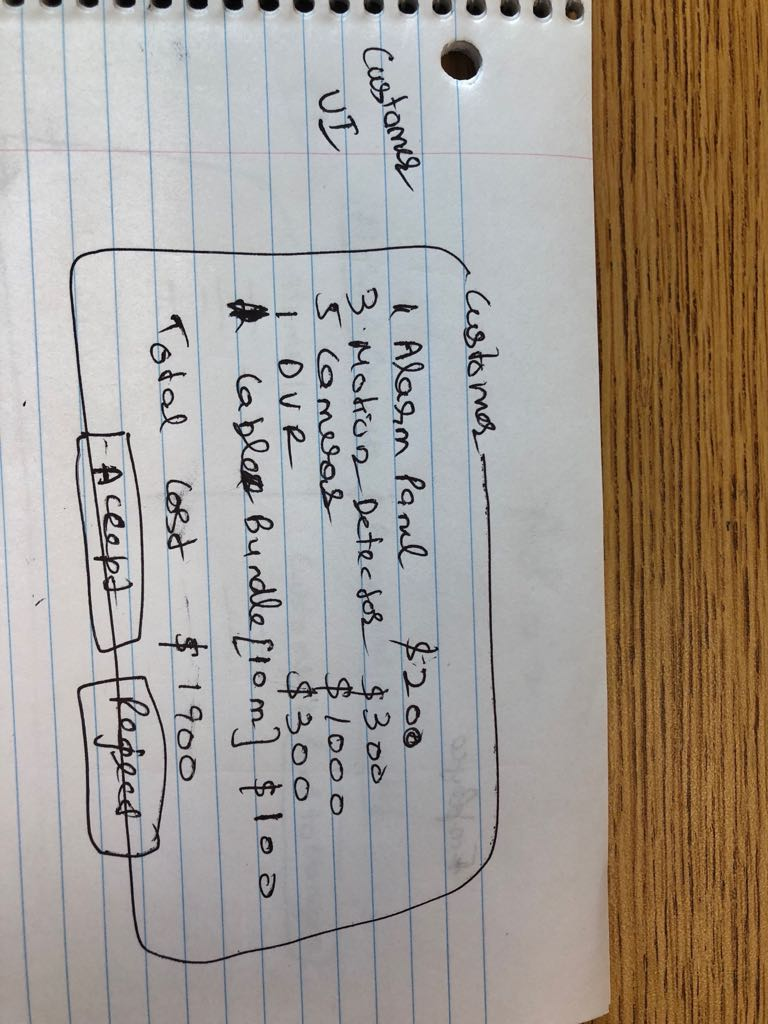 Customer
UI
Customer
1 Alarm Panel $200
3 Motion Detector $300
5 Cameras $1000
1 DVR $300
Cable Bundle [10m] $100
Total Cost $1900
Accept Reject